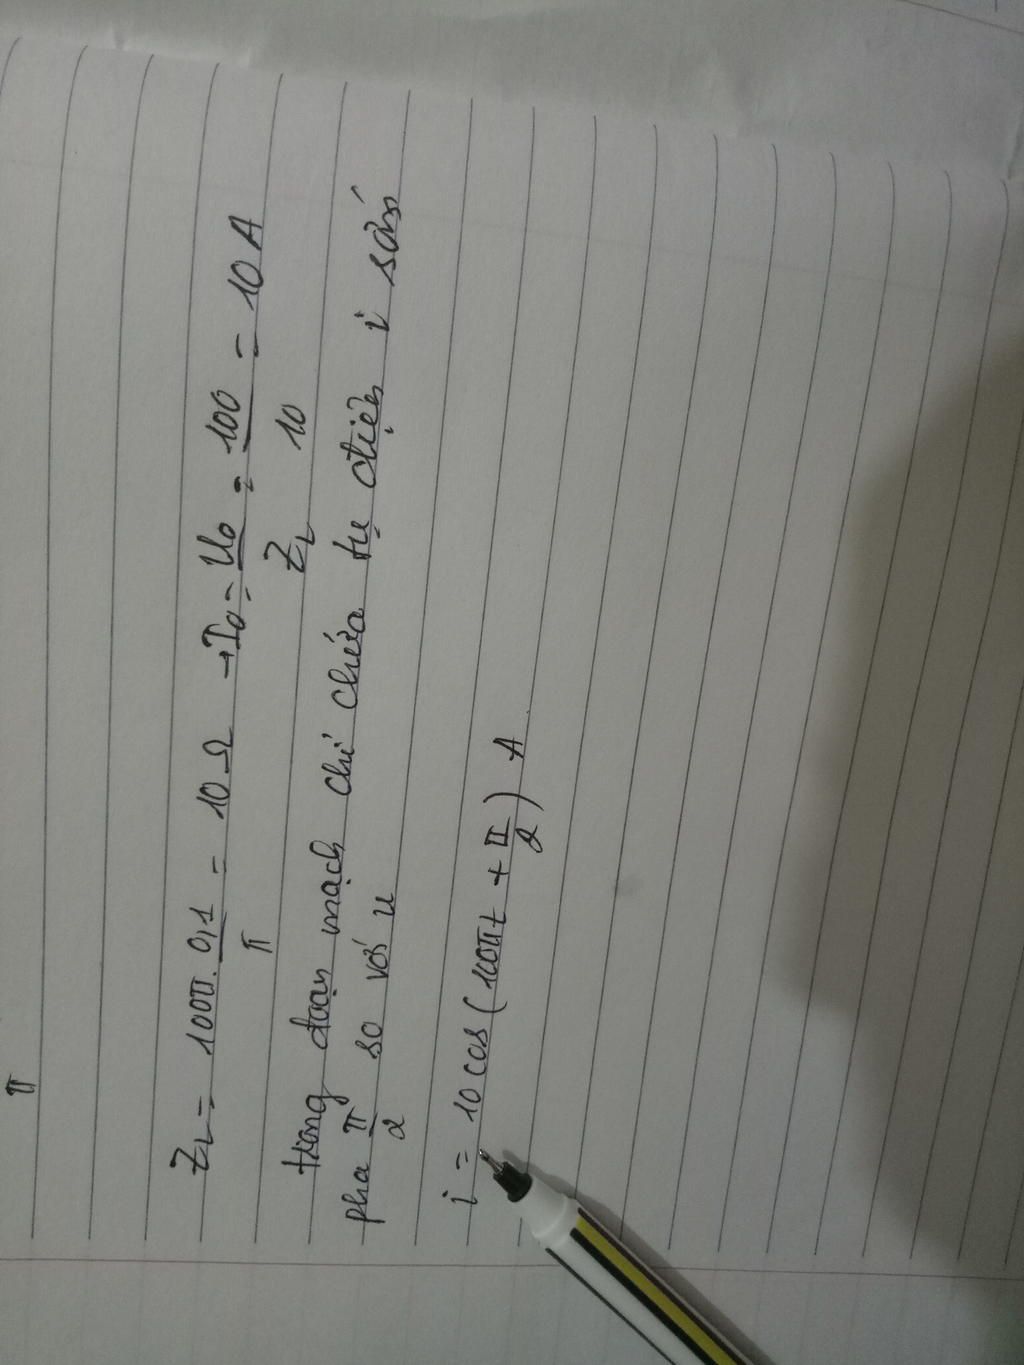 π
Z_L = 100π. 0,1/π = 10 Ω → I₀ = U₀/Z_L = 100/10 = 10 A
trong đoạn mạch chỉ chứa tụ điện i sớm
pha π/2 so với u
i = 10 cos (100πt + π/2) A